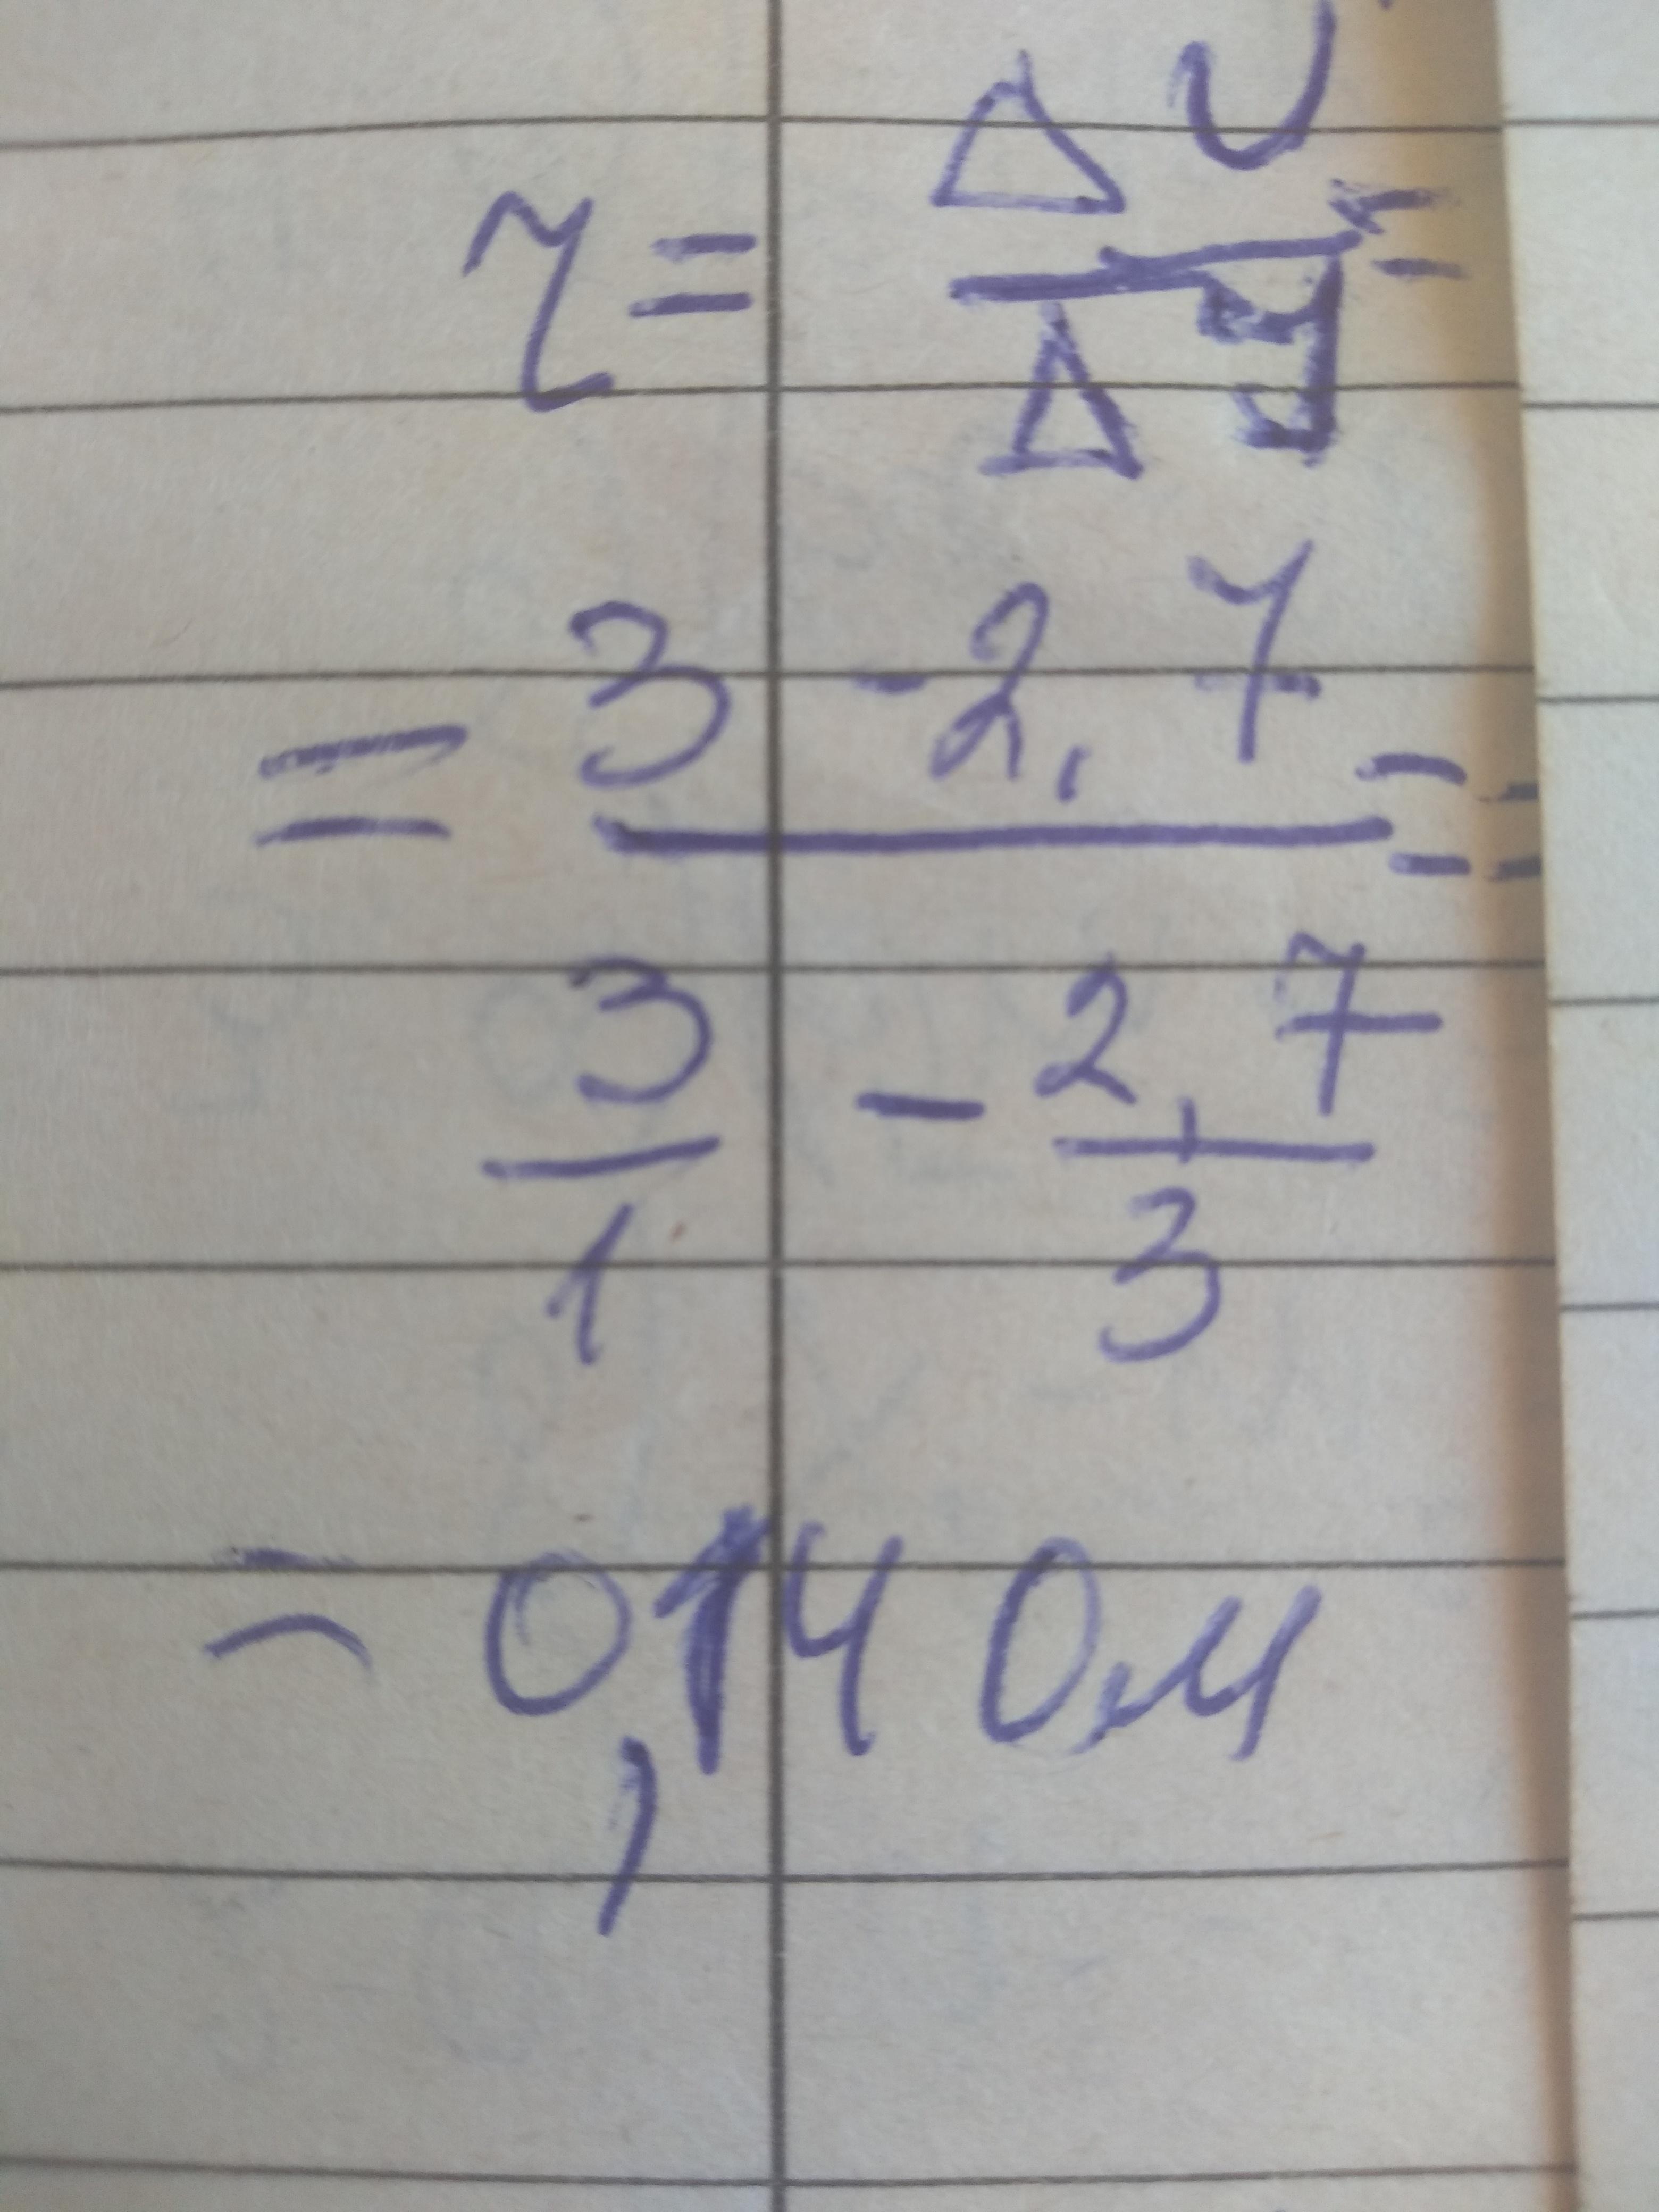 r = ΔU / ΔY =
= 3 - 2,7 / (3/1 - 2,7/3) =
= 0,14 Ом